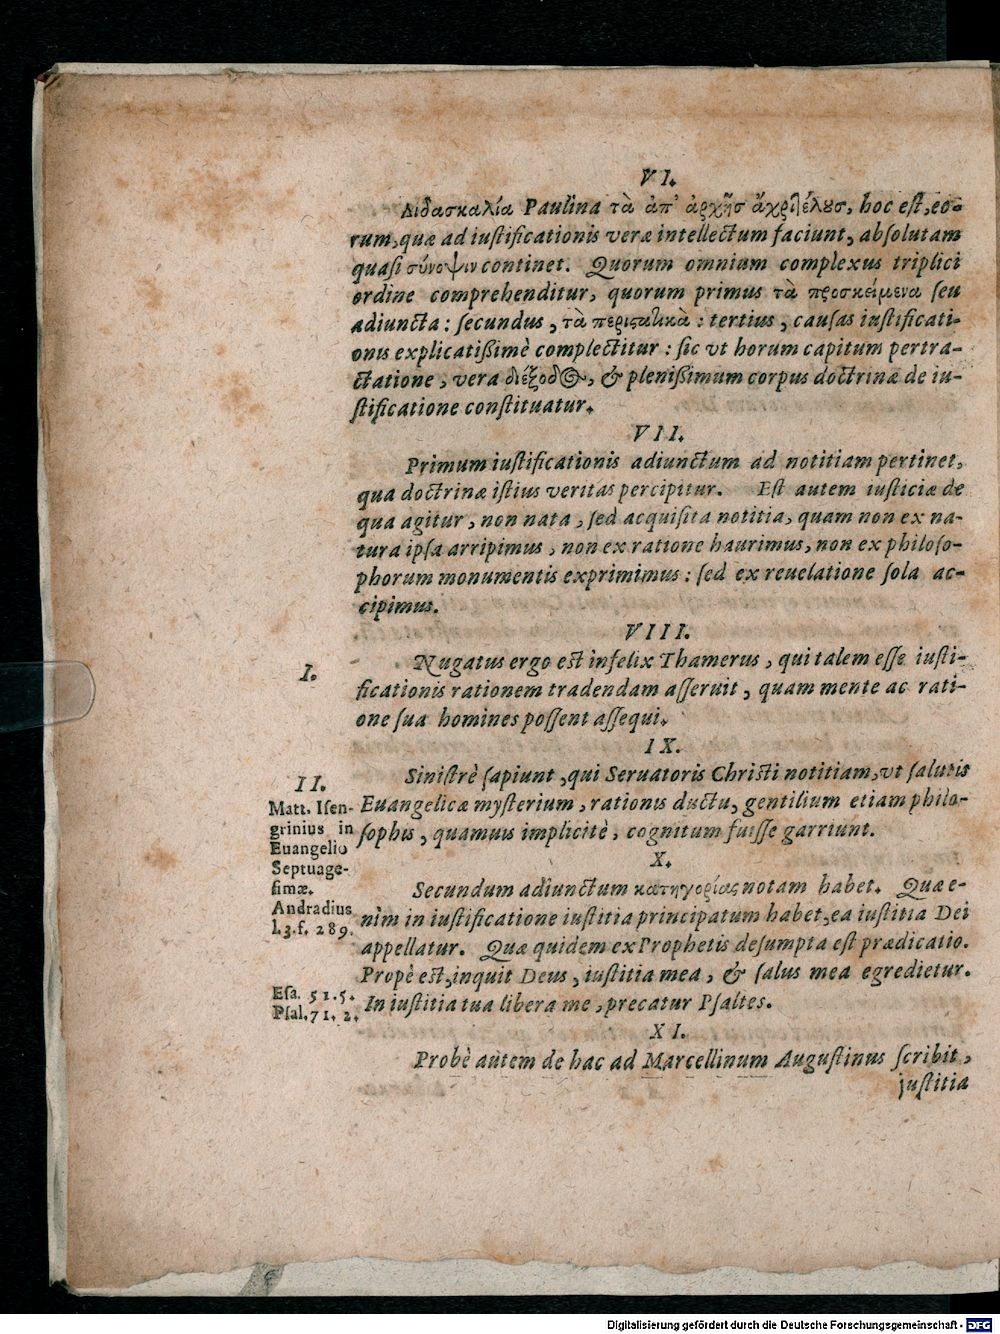 VI.
Διδασκαλία Paulina τὰ ἀπ' ἀρχῆσ ἄχρι τέλουσ, hoc est, eo-
rum, quæ ad iustificationis veræ intellectum faciunt, absolutam
quasi σύνοψιν continet. Quorum omnium complexus triplici
ordine comprehenditur, quorum primus τὰ προσκείμενα seu
adiuncta: secundus, τὰ περιστατικὰ: tertius, causas iustificati-
onis explicatißimè complectitur: sic vt horum capitum pertra-
ctatione, vera διέξοδος, & plenißimum corpus doctrinæ de iu-
stificatione constituatur.
VII.
Primum iustificationis adiunctum ad notitiam pertinet,
qua doctrinæ istius veritas percipitur. Est autem iusticiæ de
qua agitur, non nata, sed acquisita notitia, quam non ex na-
tura ipsa arripimus, non ex ratione haurimus, non ex philoso-
phorum monumentis exprimimus: sed ex reuelatione sola ac-
cipimus.
VIII.
I.
Nugatus ergo est infelix Thamerus, qui talem esse iusti-
ficationis rationem tradendam asseruit, quam mente ac rati-
one sua homines possent assequi.
IX.
II.
Matt. Isen-
grinius in
Euangelio
Septuage-
simæ.
Andradius
l.3.f. 289.
Sinistrè sapiunt, qui Seruatoris Christi notitiam, vt salutis
Euangelicæ mysterium, rationis ductu, gentilium etiam philo-
sophis, quamuis implicitè, cognitum fuisse garriunt.
X.
Secundum adiunctum κατηγορίας notam habet. Quæ e-
nim in iustificatione iustitia principatum habet, ea iustitia Dei
appellatur. Quæ quidem ex Prophetis desumpta est prædicatio.
Propè est, inquit Deus, iustitia mea, & salus mea egredietur.
In iustitia tua libera me, precatur Psaltes.
Esa. 51.5.
Psal. 71. 2.
XI.
Probè autem de hac ad Marcellinum Augustinus scribit,
justitia
Digitalisierung gefördert durch die Deutsche Forschungsgemeinschaft - DFG